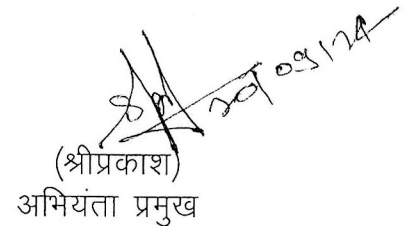 20/09/24
(श्रीप्रकाश)
अभियंता प्रमुख